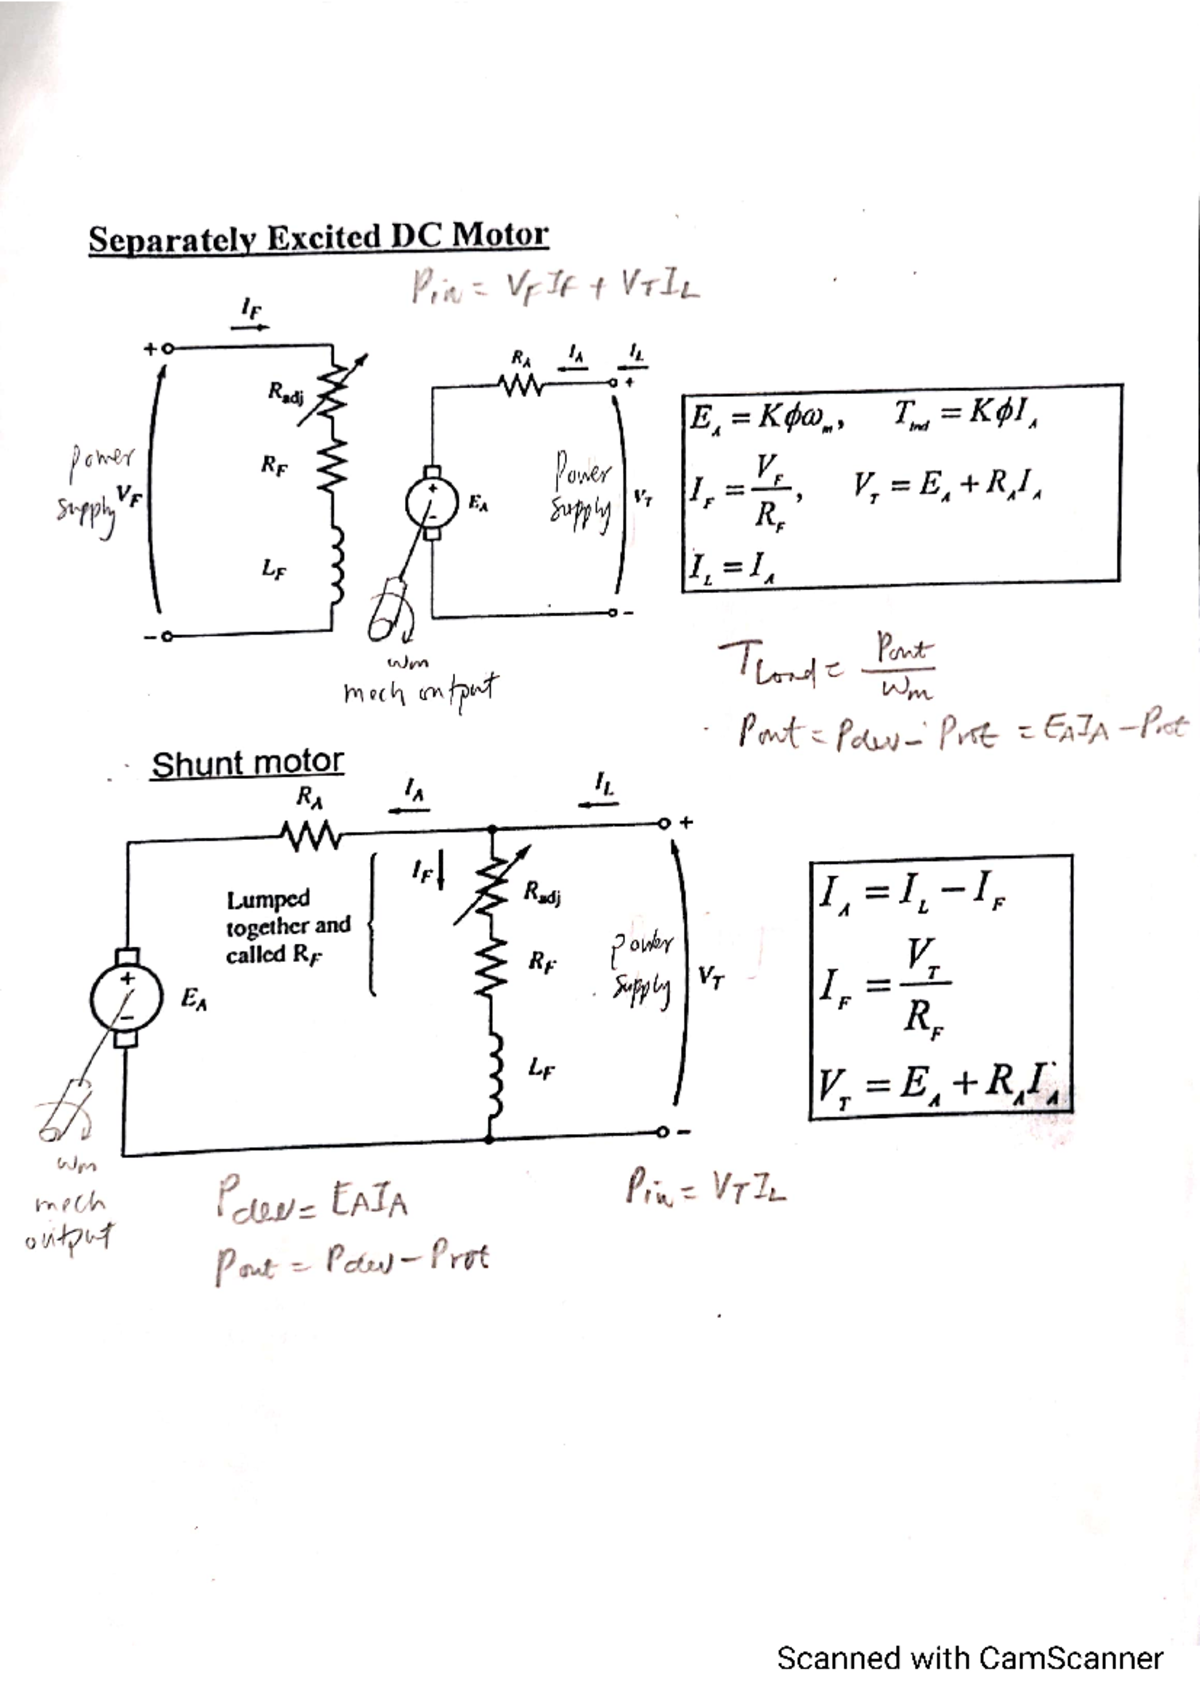 Separately Excited DC Motor
Pin = VFIF + VTIL
IF
+
Radj
RF
LF
Power
supply VF
-
RA IA IL
+
EA
Power
supply VT
-
ωm
mech output
E_A = Kϕω_m, T_ind = KϕI_A
I_F = V_F / R_F, V_T = E_A + R_A I_A
I_L = I_A
TLoad = Pout / ωm
Pout = Pdev - Prot = EAIA - Prot
Shunt motor
RA
IA
IL
+
IF
Lumped
together and
called RF
Radj
RF
LF
Power
supply VT
-
+
-
EA
ωm
mech
output
I_A = I_L - I_F
I_F = V_T / R_F
V_T = E_A + R_A I_A
Pdev = EAIA
Pout = Pdev - Prot
Pin = VTIL
Scanned with CamScanner